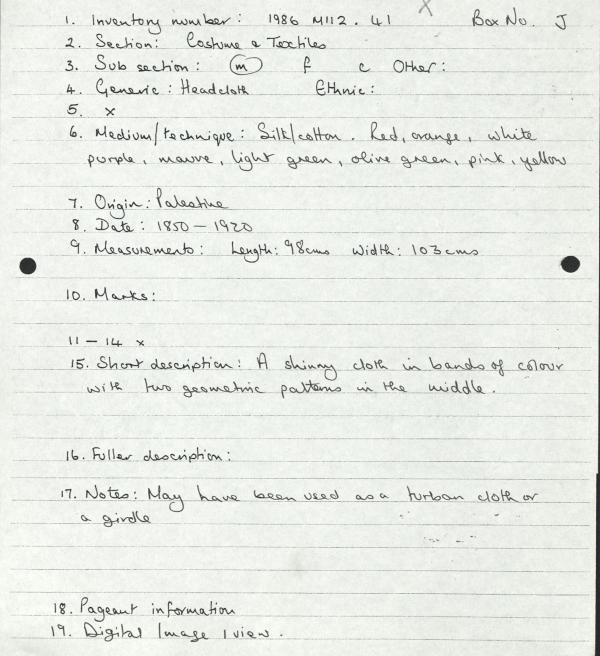 1. Inventory number: 1986 M112.41 X Box No. J
2. Section: Costume & Textiles
3. Sub section: m f c Other:
4. Generic: Headcloth Ethnic:
5. x
6. Medium/technique: Silk/cotton. Red, orange, white
purple, mauve, light green, olive green, pink, yellow
7. Origin: Palestine
8. Date: 1850 – 1920
9. Measurements: Length: 98cms Width: 103cms
10. Marks:
11 – 14 x
15. Short description: A shinny cloth in bands of colour
with two geometric patterns in the middle.
16. Fuller description:
17. Notes: May have been used as a turban cloth or
a girdle
18. Pageant information
19. Digital Image 1 view.